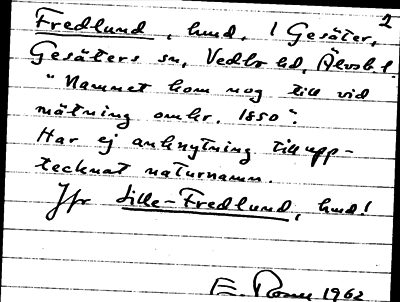 2
Fredlund, hmd, 1 Gesäter,
Gesäters sn, Vedbo hd, Älvsb. l.
"Namnet kom nog till vid
mätning omkr. 1850".
Har ej anknytning till upp-
tecknat naturnamn.
Jfr Lille-Fredlund, hmd!
E. 1962